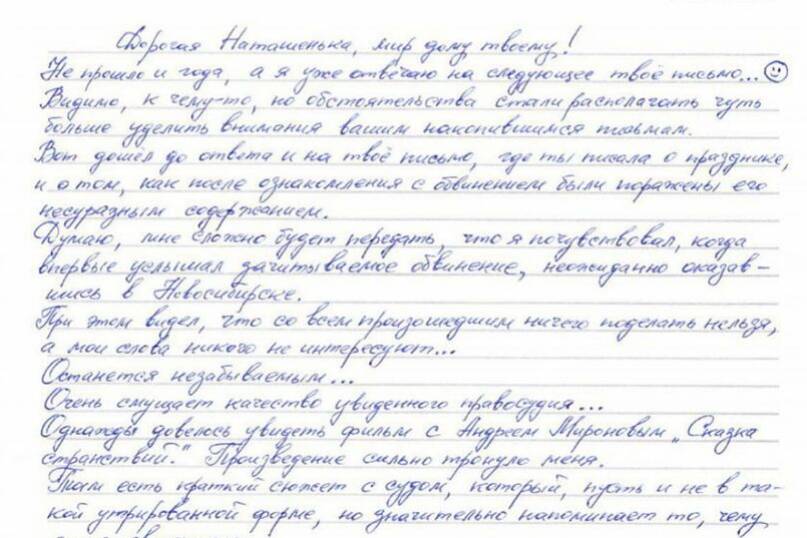 Дорогая Наташенька, мир дому твоему!
Не прошло и года, а я уже отвечаю на следующее твоё письмо...
Видимо, к чему-то, но обстоятельства стали располагать чуть
больше уделить внимания вашим накопившимся письмам.
Вот дошёл до ответа и на твоё письмо, где ты писала о празднике,
и о том, как после ознакомления с обвинением были поражены его
несуразным содержанием.
Думаю, мне сложно будет передать, что я почувствовал, когда
впервые услышал зачитываемое обвинение, неожиданно оказав-
шись в Новосибирске.
При этом видел, что со всем произошедшим ничего поделать нельзя,
а мои слова никого не интересуют...
Останется незабываемым...
Очень смущает качество увиденного правосудия...
Однажды довелось увидеть фильм с Андреем Мироновым „Сказка
странствий." Произведение сильно тронуло меня.
Там есть краткий сюжет с судом, который, пусть и не в та-
кой утрированной форме, но значительно напоминает то, чему